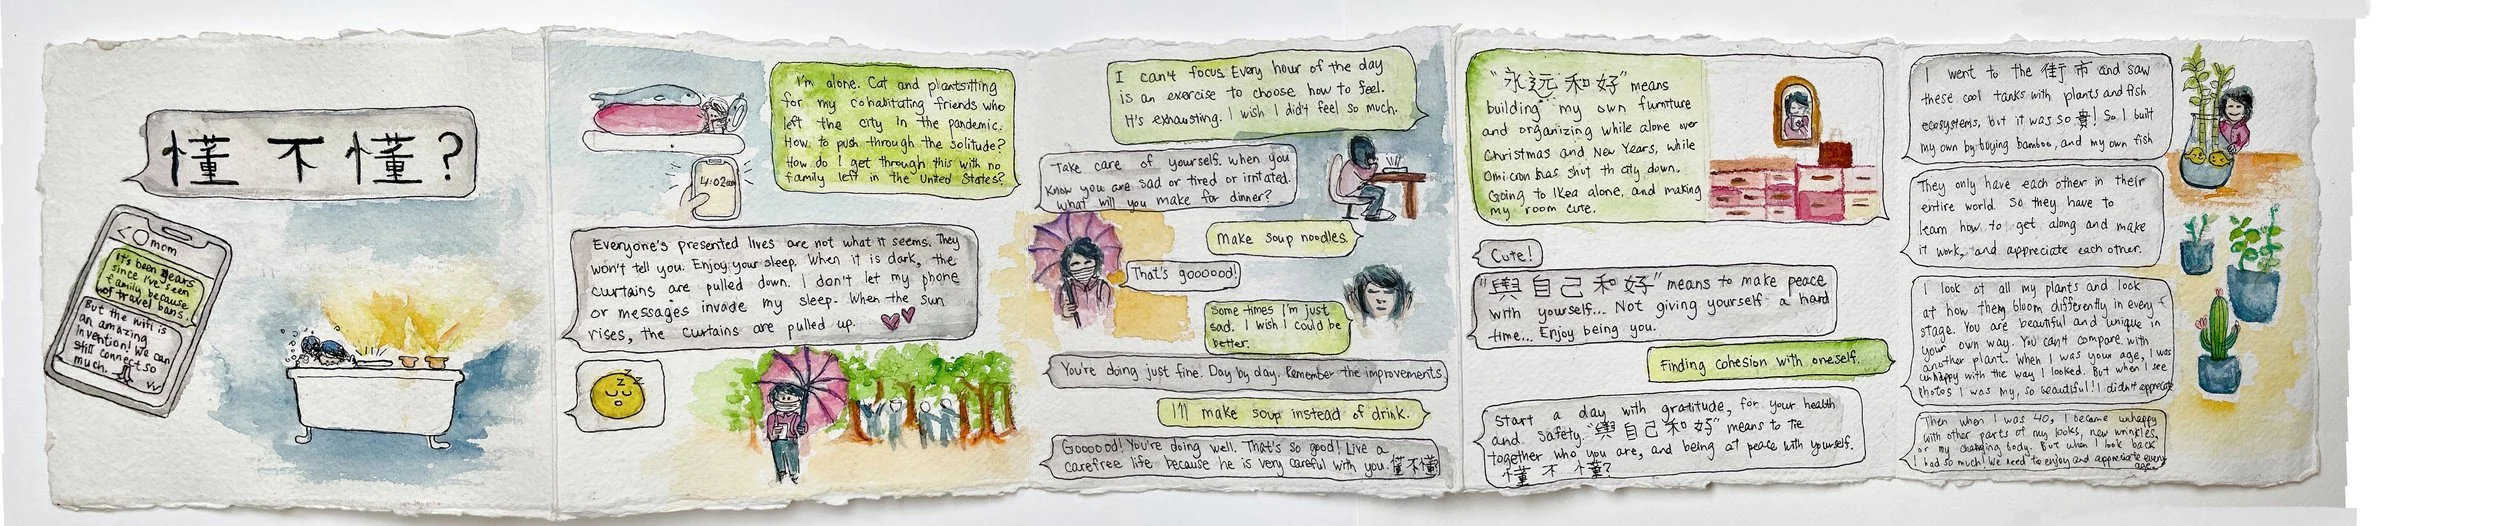 懂 不 懂?
mom
It's been years
since I've seen
family because
of travel bans.
But the wifi is
an amazing
invention! We can
still connect so
much.
4:02am
I'm alone. Cat and plantsitting
for my cohabitating friends who
left the city in the pandemic.
How to push through the solitude?
How do I get through this with no
family left in the United States?
Everyone's presented lives are not what it seems. They
won't tell you. Enjoy your sleep. When it is dark, the
curtains are pulled down. I don't let my phone
or messages invade my sleep. When the sun
rises, the curtains are pulled up.
z z z
I can't focus. Every hour of the day
is an exercise to choose how to feel.
It's exhausting. I wish I didn't feel so much.
Take care of yourself. When you
know you are sad or tired or irritated.
What will you make for dinner?
Make soup noodles.
That's goooood!
Some times I'm just
sad. I wish I could be
better.
You're doing just fine. Day by day. Remember the improvements.
I'll make soup instead of drink.
Goooood! You're doing well. That's so good! Live a
carefree life because he is very careful with you. 懂不懂
"永远和好" means
building my own furniture
and organizing while alone over
Christmas and New Years, while
Omicron has shut th city down.
Going to Ikea alone, and making
my room cute.
Cute!
"與自己和好" means to make peace
with yourself... Not giving yourself a hard
time... Enjoy being you.
Finding cohesion with oneself.
Start a day with gratitude, for your health
and safety. "與自己和好" means to tie
together who you are, and being at peace with yourself.
懂 不 懂?
I went to the 街市 and saw
these cool tanks with plants and fish
ecosystems, but it was so 貴! So I built
my own by buying bamboo, and my own fish
They only have each other in their
entire world. So they have to
learn how to get along and make
it work, and appreciate each other.
I look at all my plants and look
at how them bloom differently in every
stage. You are beautiful and unique in
your own way. You can't compare with
another plant. When I was your age, I was
unhappy with the way I looked. But when I see
photos I was my, so beautiful! I didn't appreciate
Then when I was 40, I became unhappy
with other parts of my looks, new wrinkles,
or my changing body. But when I look back
I had so much! We need to enjoy and appreciate every
age.